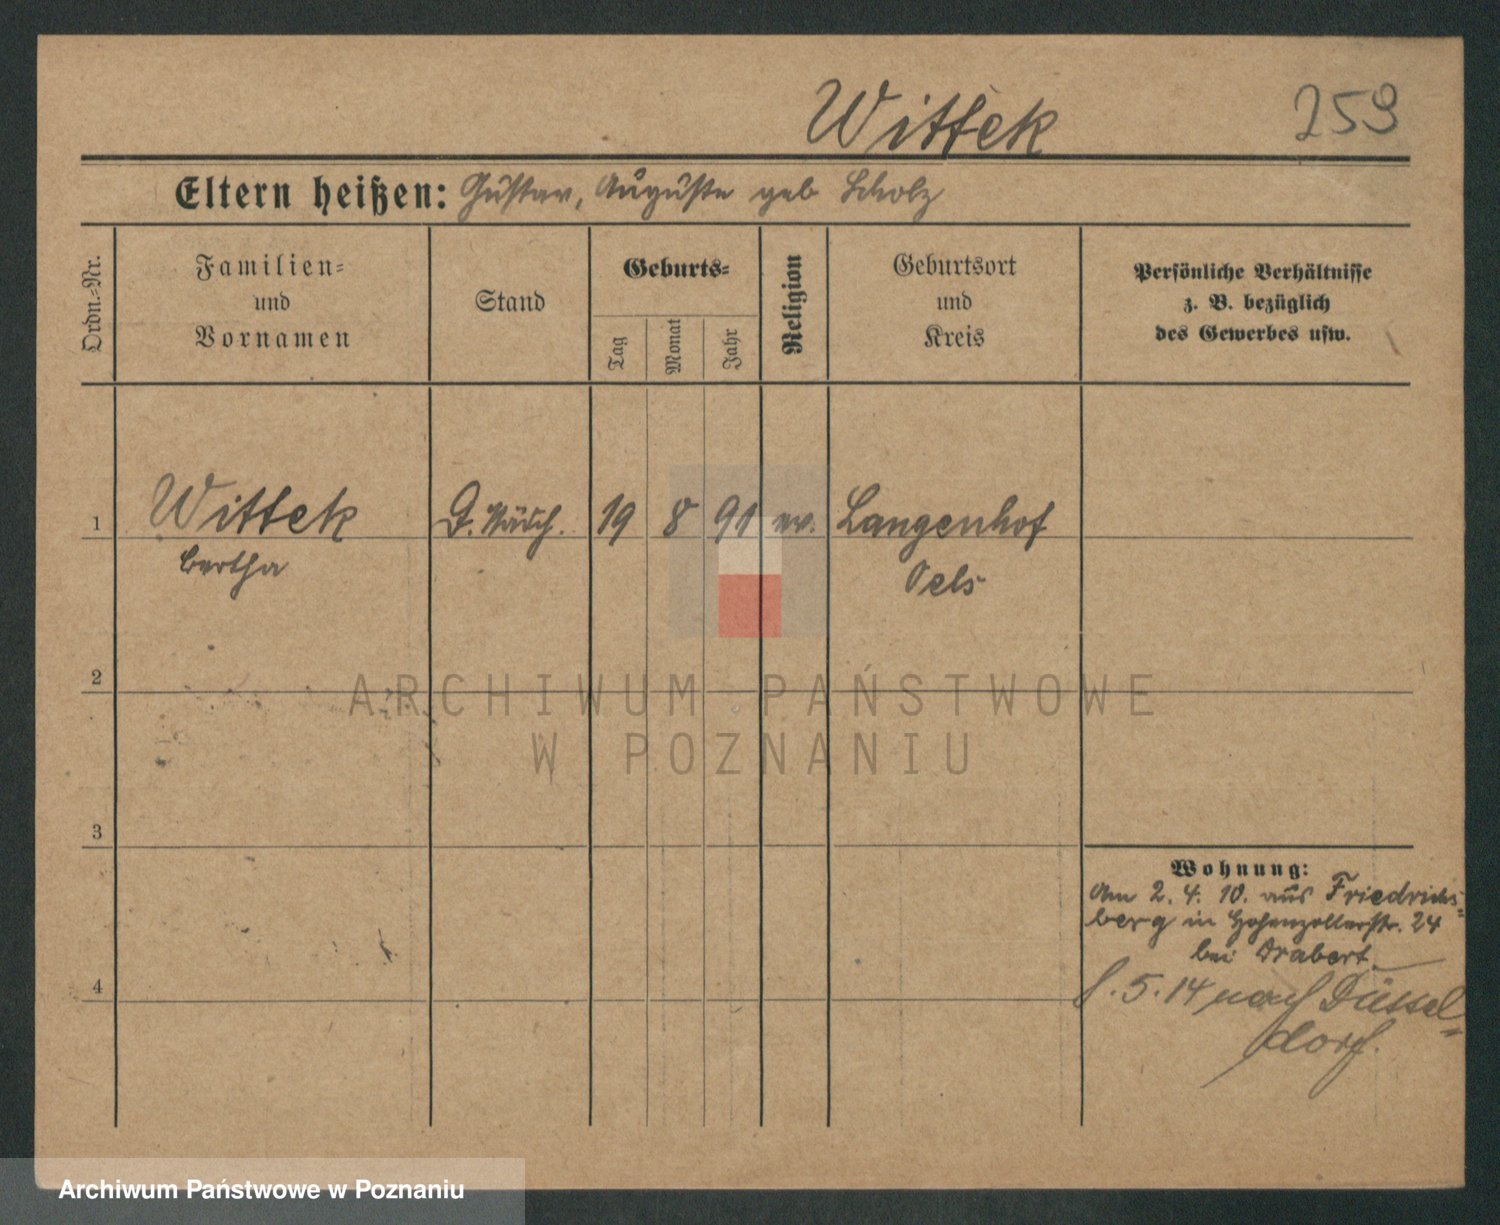 Wittek 259
Eltern heißen: Gustav, Auguste geb Scholz
Ordn.-Nr.
Familien-
und
Vornamen
Stand
Geburts-
Tag
Monat
Jahr
Religion
Geburtsort
und
Kreis
Persönliche Verhältnisse
z. B. bezüglich
des Gewerbes usw.
1 Wittek D. 19 8 91 ev. Langenhof
Bertha Oels
2
ARCHIWUM PAŃSTWOWE
W POZNANIU
3
Wohnung:
Am 2. 4. 10. aus Friedrichs-
berg in Hohenzollernstr. 24
bei Drabert.
4
5. 14 nach Düssel-
dorf.
Archiwum Państwowe w Poznaniu